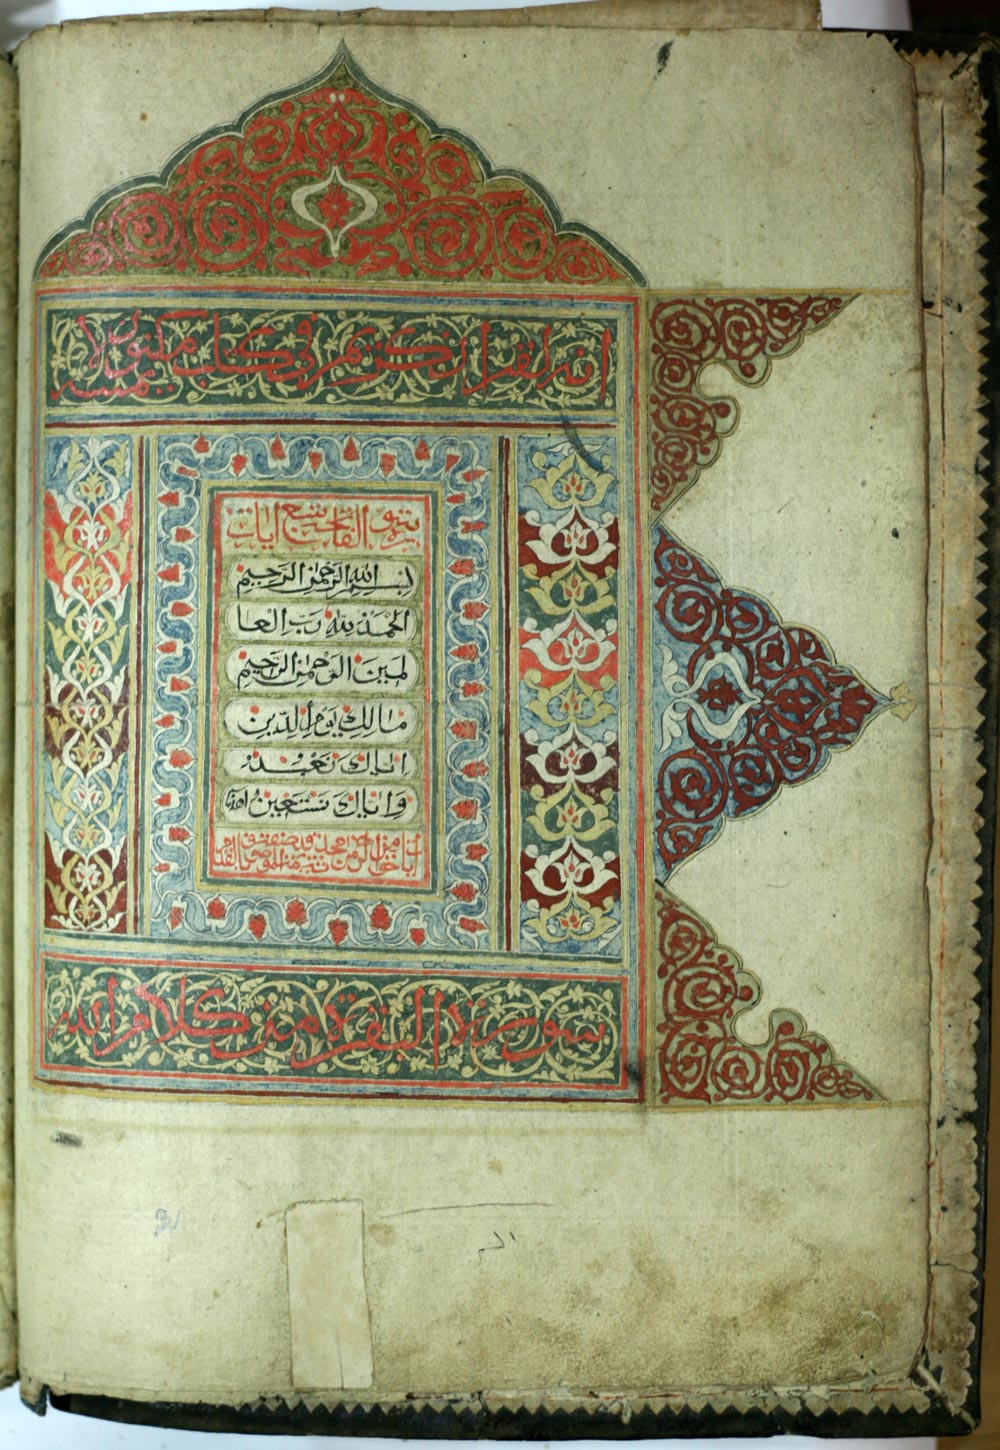 انه لقرآن كريم في كتاب مكنون لا يمسه
سورة الفاتحة سبع ايات
بسم الله الرحمن الرحيم
الحمد لله رب العا
لمين الرحمن الرحيم
مالك يوم الدين
اياك نعبد
واياك نستعين اهدنا
سورة البقرة من كلام الله
الم